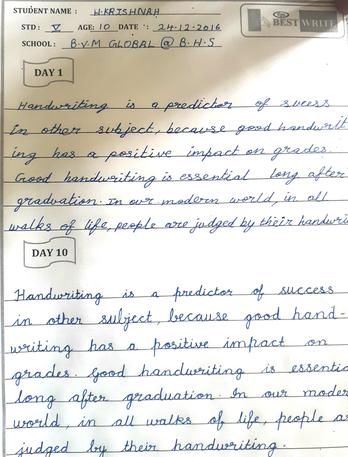 STUDENT NAME : H.KRISHNAH
STD : V AGE: 10 DATE : 24-12-2016
SCHOOL : B.V.M GLOBAL @ B.H.S
BEST WRITE
DAY 1
Handwriting is a predictor of sucess
in other subject, because good handwrit
ing has a positive impact on grades.
Good handwriting is essential long after
graduation. In our modern world, in all
walks of life, people are judged by their handwri
DAY 10
Handwriting is a predictor of success
in other subject, because good hand-
writing has a positive impact on
grades. Good handwriting is essentia
long after graduation. In our moder
world, in all walks of life, people a
judged by their handwriting.